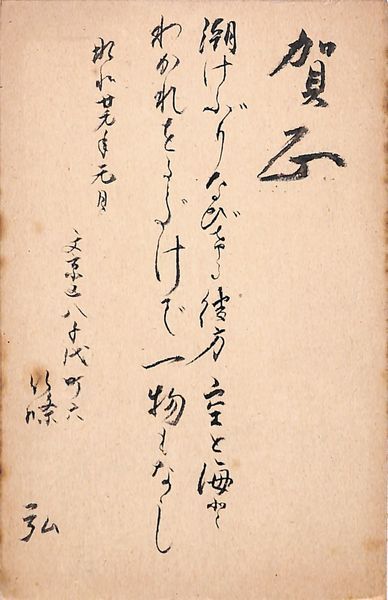 賀正
潮けぶりなびきし彼方空と海と
わかれをるだけで一物もなし
昭和廿九年元旦
文京区八千代町六
弘